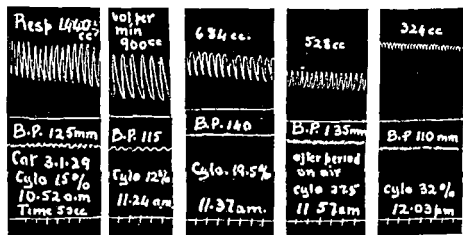 Resp 1440
cc
B.P. 125mm
Cat 3.1.29
Cyclo 15%
10.52 a.m
Time 5 sec
vol per
min
900cc
B.P. 115
Cyclo 12%
11.24 am
684cc.
B.P. 140
Cyclo. 19.5%
11.37am.
528cc
B.P. 135mm
after period
on air
cyclo 27.5
11.57am
324cc
B.P 110mm
cyclo 32%
12.03pm